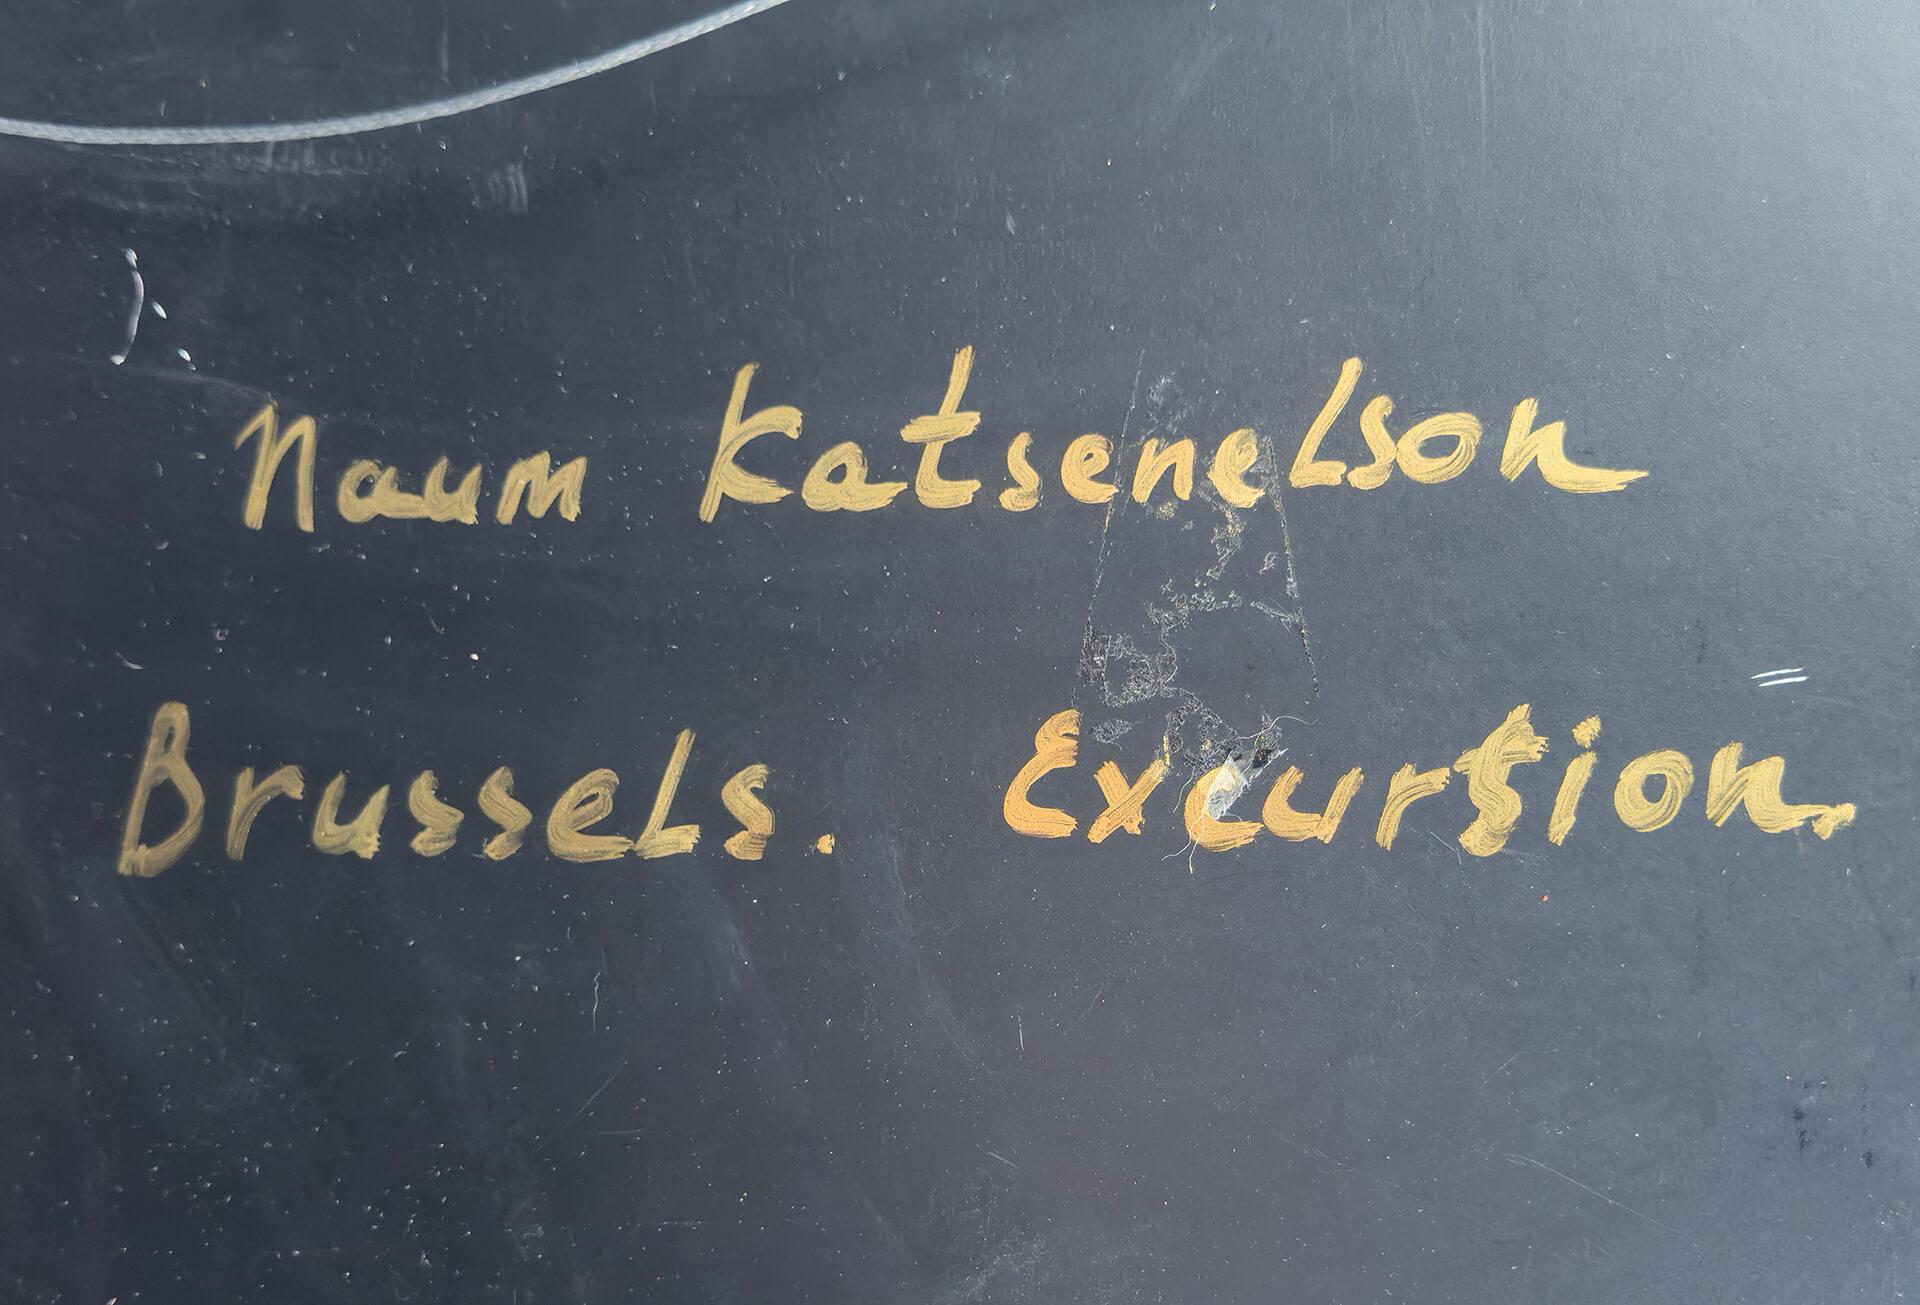 Naum Katsenelson
Brussels. Excursion.